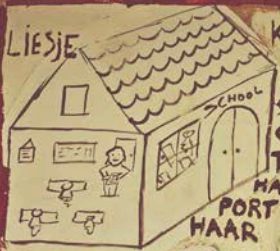 LIESJE
SCHOOL
HA
PORT
HAAR